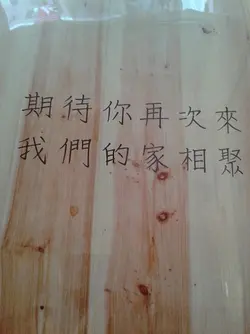 期待你再次來
我們的家相聚